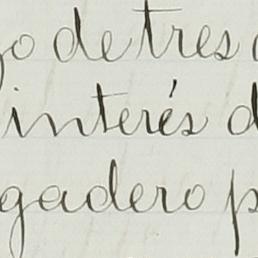 o de tres
interés d
gadero p